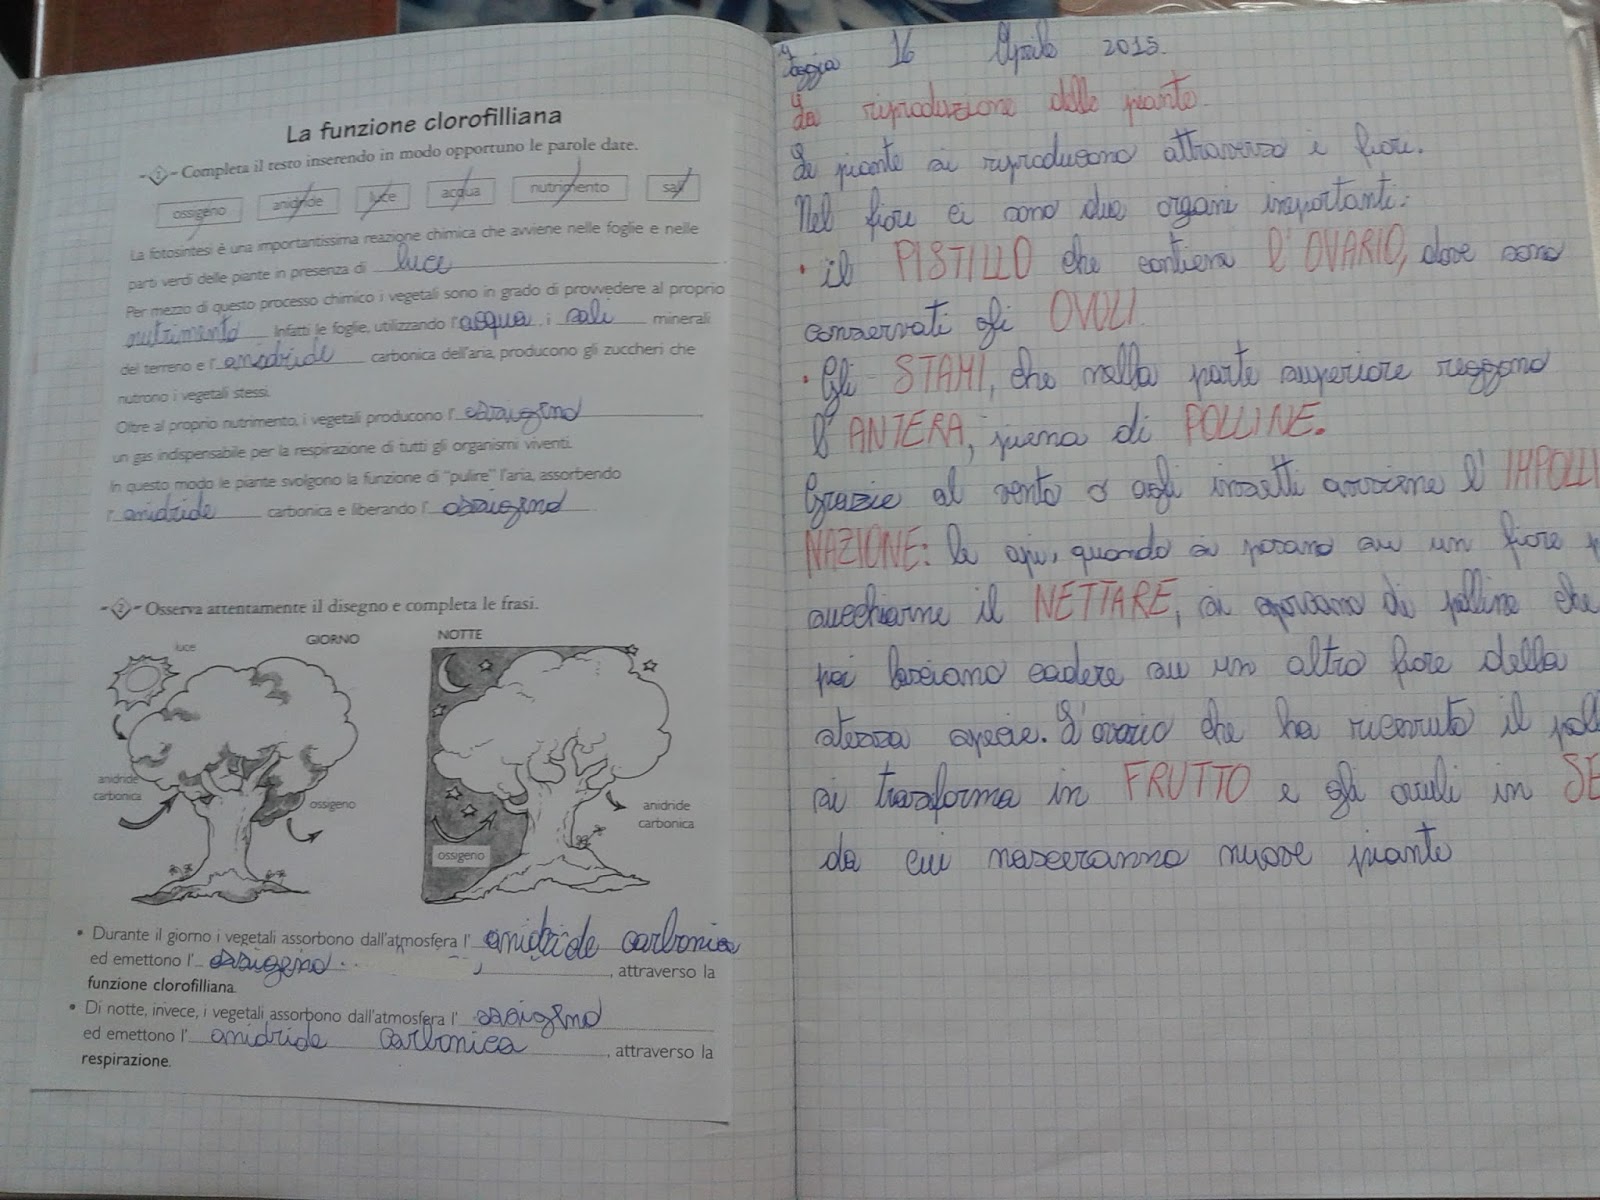 La funzione clorofilliana
1 Completa il testo inserendo in modo opportuno le parole date.
ossigeno anidride luce acqua nutrimento sali
La fotosintesi è una importantissima reazione chimica che avviene nelle foglie e nelle
parti verdi delle piante in presenza di luce.
Per mezzo di questo processo chimico i vegetali sono in grado di provvedere al proprio
nutrimento. Infatti le foglie, utilizzando l'acqua, i sali minerali
del terreno e l'anidride carbonica dell'aria, producono gli zuccheri che
nutrono i vegetali stessi.
Oltre al proprio nutrimento, i vegetali producono l'ossigeno,
un gas indispensabile per la respirazione di tutti gli organismi viventi.
In questo modo le piante svolgono la funzione di "pulire" l'aria, assorbendo
l'anidride carbonica e liberando l'ossigeno.
2 Osserva attentamente il disegno e completa le frasi.
GIORNO
luce
anidride
carbonica
ossigeno
NOTTE
ossigeno
anidride
carbonica
• Durante il giorno i vegetali assorbono dall'atmosfera l'anidride carbonica
ed emettono l'ossigeno, attraverso la
funzione clorofilliana.
• Di notte, invece, i vegetali assorbono dall'atmosfera l'ossigeno
ed emettono l'anidride carbonica, attraverso la
respirazione.
Foggia 16 Aprile 2015.
La riproduzione delle piante.
Le piante si riproducono attraverso i fiori.
Nel fiore ci sono due organi importanti:
• il PISTILLO che contiene l'OVARIO, dove sono
conservati gli OVULI.
• Gli STAMI, che nella parte superiore reggono
l'ANTERA, piena di POLLINE.
Grazie al vento o agli insetti avviene l'IMPOLLI
NAZIONE: le api, quando si posano su un fiore
succhiarne il NETTARE, si sporcano di polline che
poi lasciano cadere su un altro fiore della
stessa specie. L'ovario che ha ricevuto il
si trasforma in FRUTTO e gli ovuli in
da cui nasceranno nuove piante